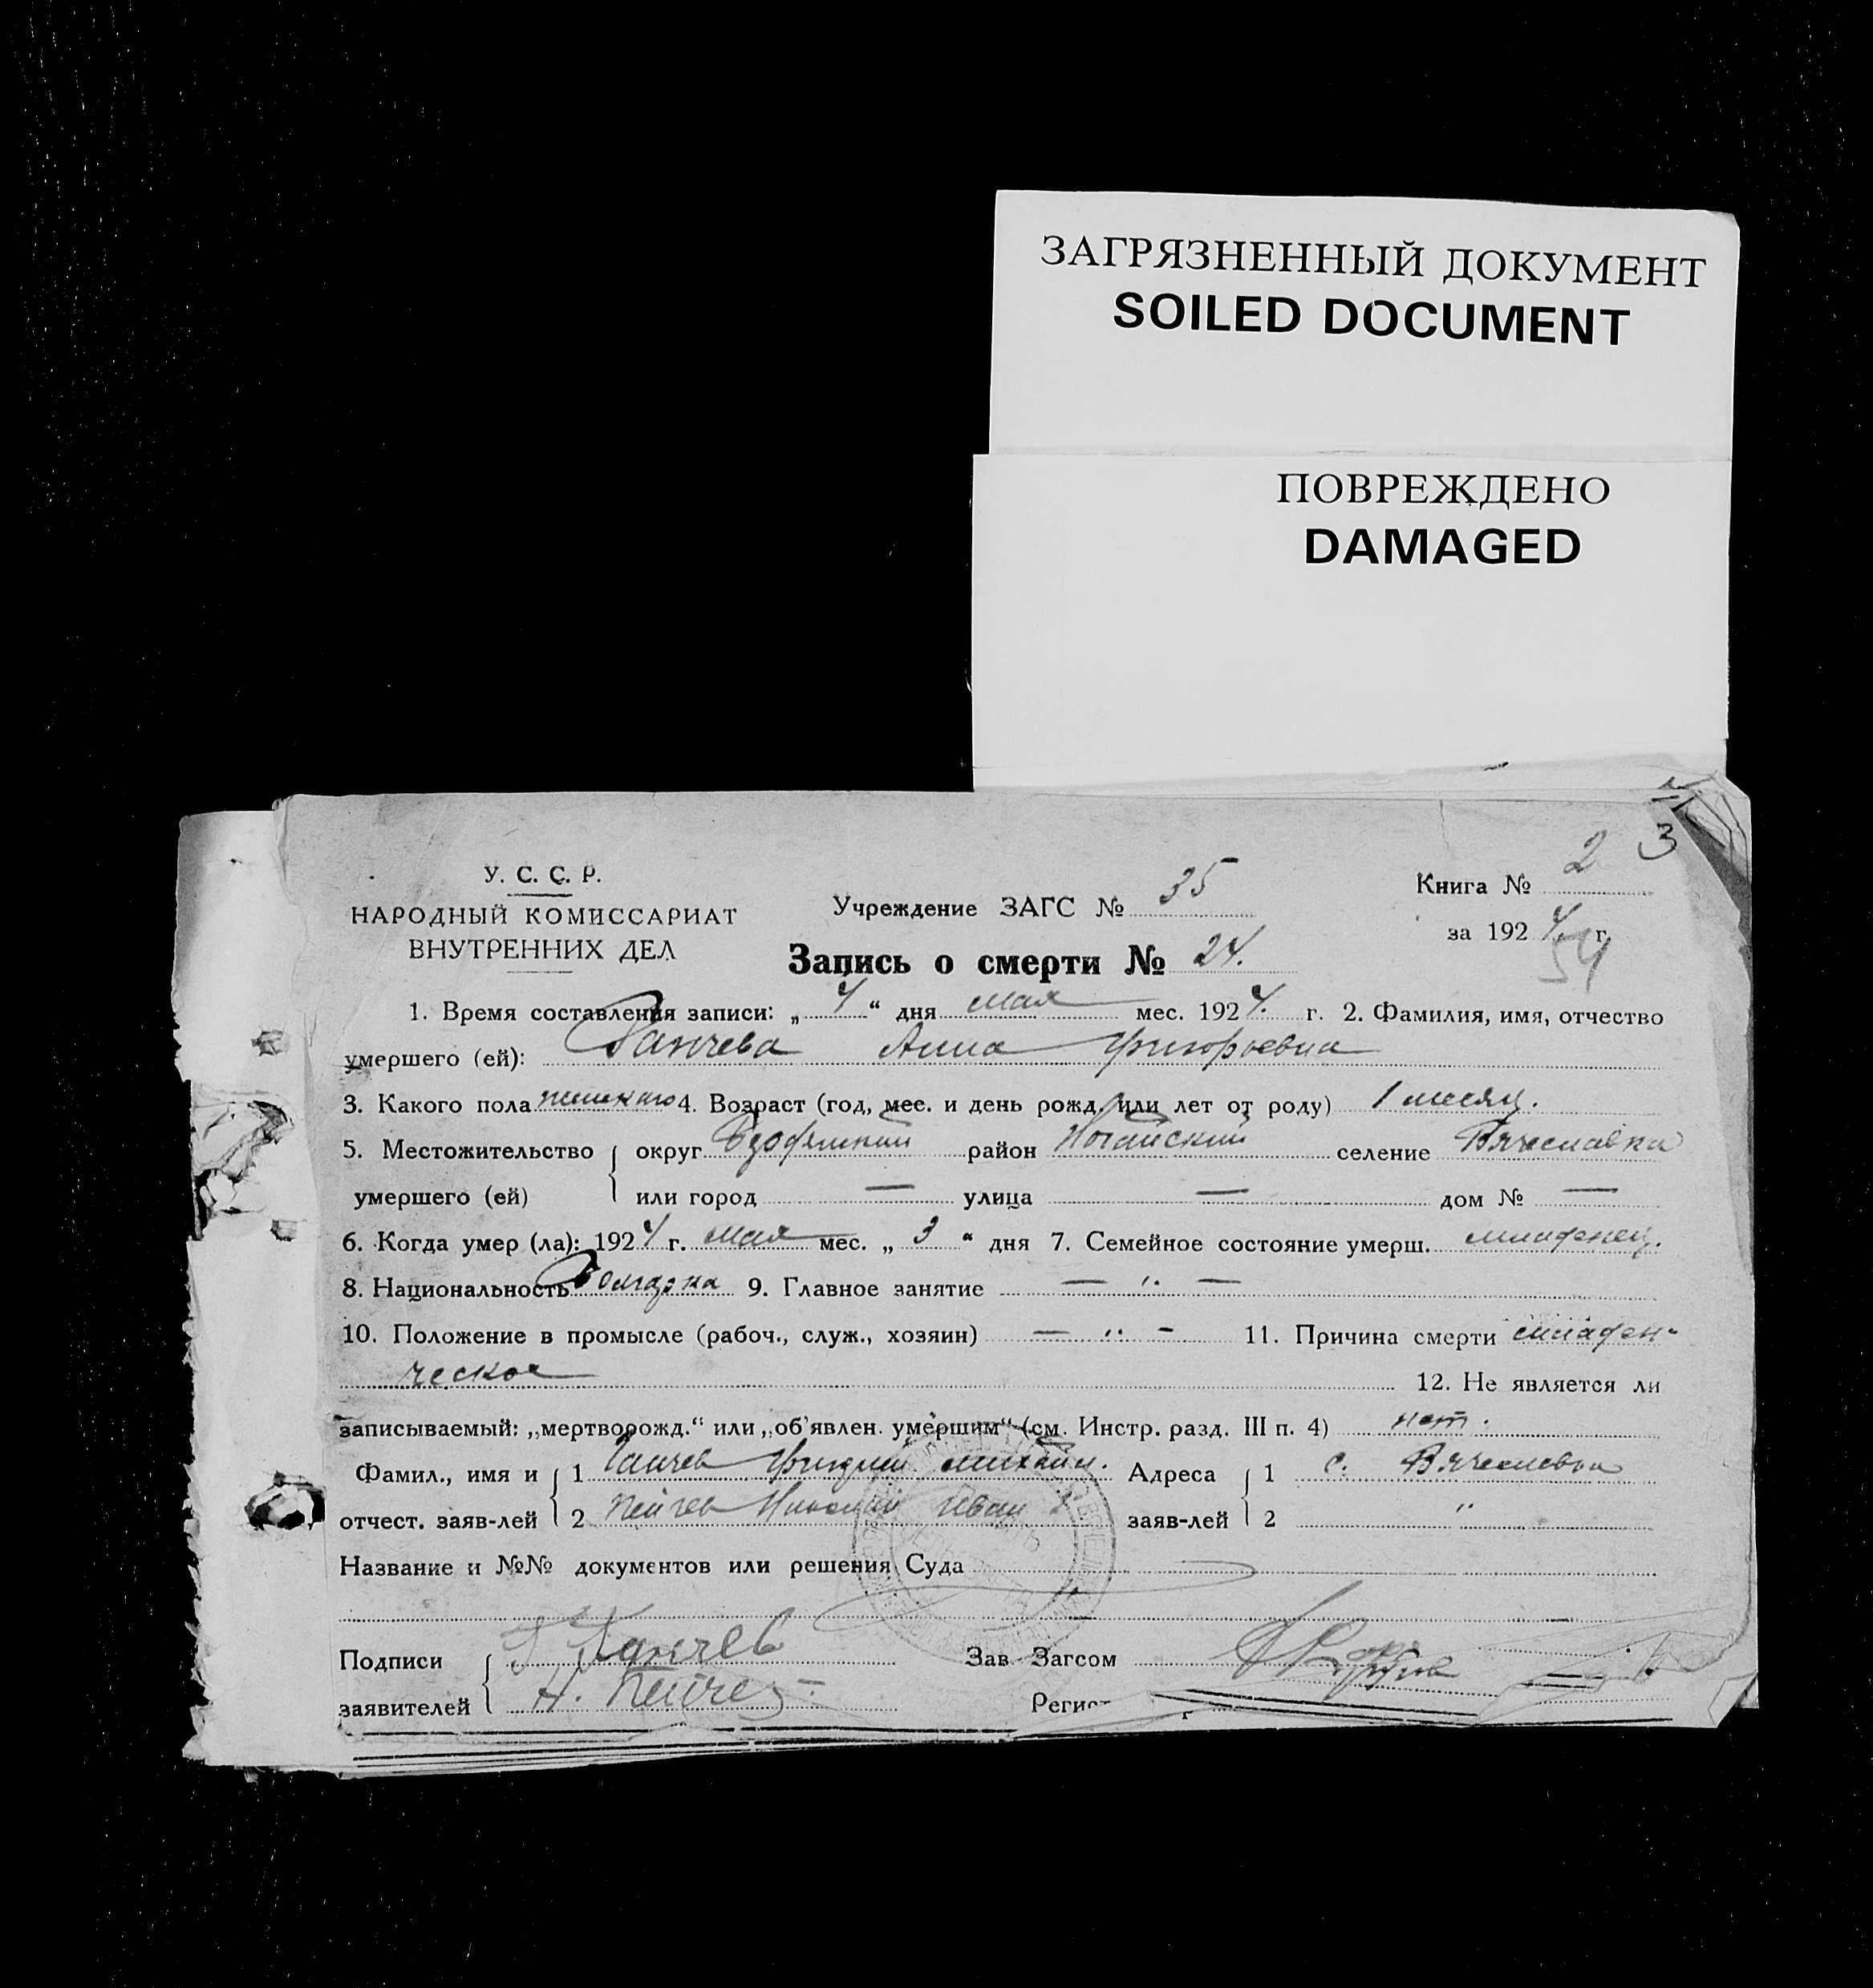 ЗАГРЯЗНЕННЫЙ ДОКУМЕНТ
SOILED DOCUMENT
ПОВРЕЖДЕНО
DAMAGED
3
У. С. С. Р.
НАРОДНЫЙ КОМИССАРИАТ
ВНУТРЕННИХ ДЕЛ
Учреждение ЗАГС № 35
Книга № 2
за 1924 г.
54
Запись о смерти № 24.
1. Время составления записи: „4“ дня мая мес. 1924. г. 2. Фамилия, имя, отчество
умершего (ей): Ганчева Анна Григорьевна
3. Какого пола женского 4. Возраст (год, мес. и день рожд. или лет от роду) 1 месяц.
5. Местожительство округ район Ногайский селение Вячеславка
умершего (ей) или город — улица — дом № —
6. Когда умер (ла): 1924 г. мая мес. „3“ дня 7. Семейное состояние умерш. младенец.
8. Национальность Болгарка 9. Главное занятие — „ —
10. Положение в промысле (рабоч., служ., хозяин) — „ - 11. Причина смерти младен-
ческое 12. Не является ли
записываемый: „мертворожд.“ или „об'явлен. умершим“ (см. Инстр. разд. III п. 4) нет.
Фамил., имя и 1 Ганчев Михайл. Адреса 1 с. Вячеславка
отчест. заяв-лей 2 Пейчев Николай Иван заяв-лей 2 "
Название и №№ документов или решения Суда
Подписи Г. Ганчев Зав. Загсом
заявителей Н. Пейчев Регист